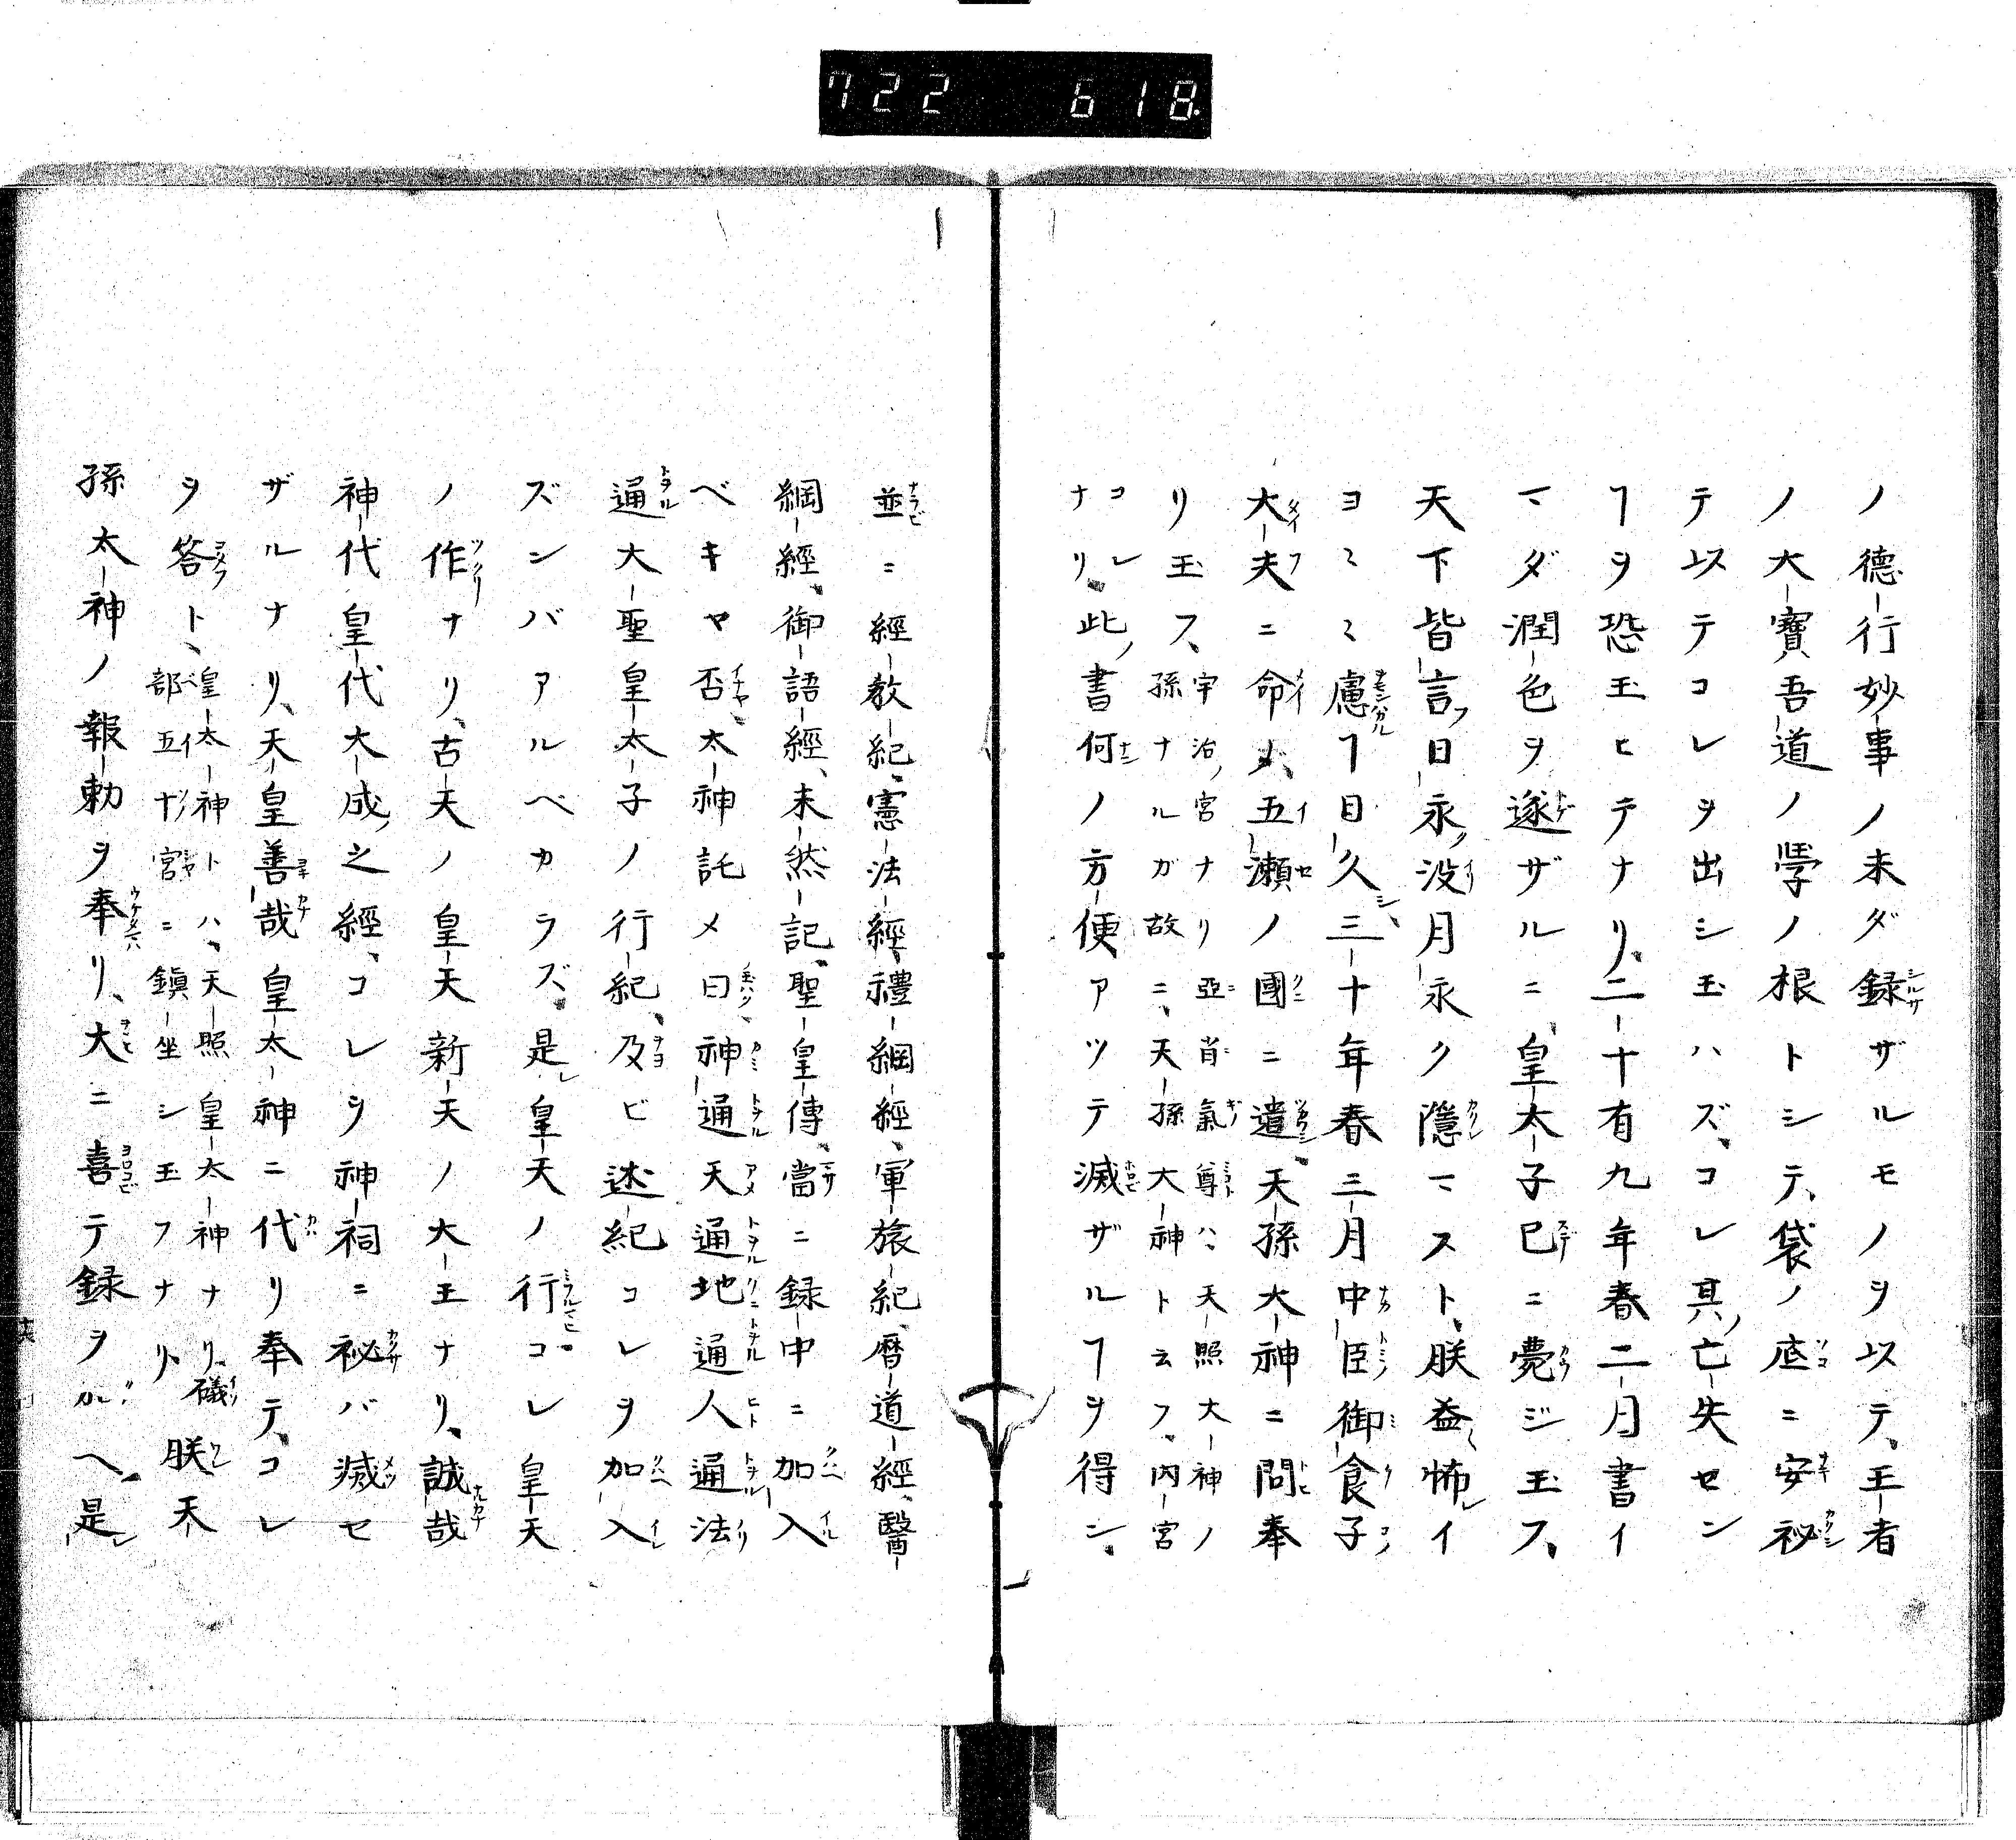 722 618
ノ德行妙事ノ未ダ録ザルモノヲ以テ、王者
ノ大寶吾道ノ學ノ根トシテ、袋ノ底ニ安祕
テ以テコレヲ出シ玉ハズ、コレ其亡失セン
ヿヲ恐玉ヒテナリ、二十有九年春二月書イ
マダ潤色ヲ遂ザルニ、皇太子已ニ薨ジ玉フ、
天下皆言フ日永ク没月永ク隱マスト、朕益怖レイ
ヨミミ慮ヿ日久シ、三十年春三月中臣御食子
大夫ニ命メ、五瀬ノ國ニ遣、天孫大神ニ問奉
リ玉フ、宇治ノ宮ナリ亞肖氣尊ハ、天照大神ノ
孫ナルガ故ニ、天孫大神ト云フ、内宮
コレ
ナリ、此書何ノ方便アツテ滅ザルヿヲ得ン、
並ニ經教紀、憲法經、禮綱經、軍旅紀、暦道經、醫
綱經、御語經、未然記、聖皇傳、當ニ録中ニ加入
ベキヤ否、太神託メ曰、神通天通地通人通法
通大聖皇太子ノ行紀、及ビ述紀コレヲ加入
ズンバアルベカラズ、是皇天ノ行コレ皇天
ノ作ナリ、古天ノ皇天新天ノ大王ナリ、誠哉
神代皇代大成之經、コレヲ神祠ニ祕バ滅セ
ザルナリ、天皇善哉皇太神ニ代リ奉テ、コレ
ヲ答ト、皇太神トハ、天照皇太神ナリ、礒
部五十宮ニ鎭坐シ玉フナリ、朕天
孫太神ノ報勅ヲ奉リ、大ニ喜テ録ヲ加ヘ、是